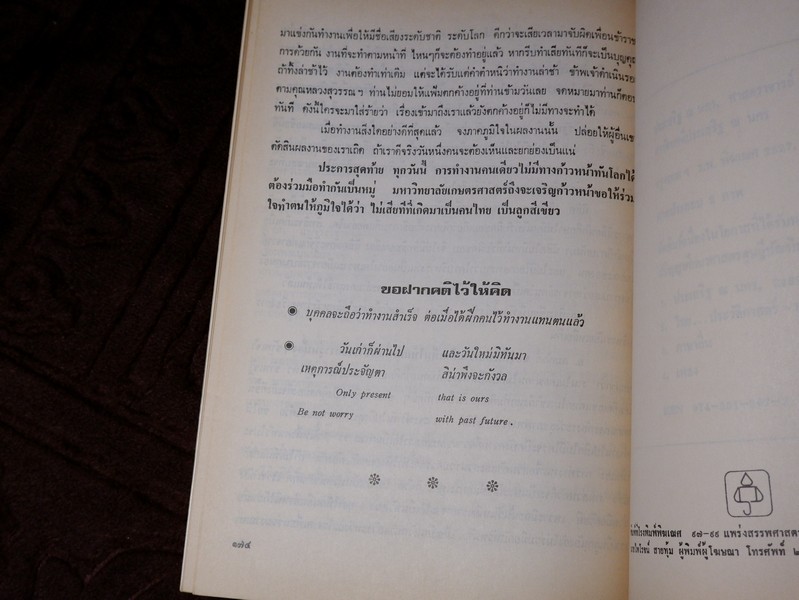 มาแข่งกันทำงานเพื่อให้มีชื่อเสียงระดับชาติ ระดับโลก ดีกว่าจะเสียเวลามาจับผิดเพื่อนข้าราช
การด้วยกัน งานที่จะทำตามหน้าที่ ไหนๆก็จะต้องทำอยู่แล้ว หากรีบทำเสียทันทีก็จะเป็นบุญคุณ
ถ้าทิ้งล่าช้าไว้ งานต้องทำเท่าเดิม แต่จะได้รับแต่คำตำหนิว่าทำงานล่าช้า ข้าพเจ้าดำเนินรอย
ตามคุณหลวงสุวรรณฯ ท่านไม่ยอมให้แฟ้มตกค้างอยู่ที่ท่านข้ามวันเลย จดหมายมาท่านก็ตอบ
ทันที ดังนี้ใครจะมาใส่ร้ายว่า เรื่องเข้ามาถึงเราแล้วยังตกค้างอยู่ก็ไม่มีทางจะทำได้
เมื่อทำงานสิ่งใดอย่างดีที่สุดแล้ว จงภาคภูมิใจในผลงานนั้น ปล่อยให้ผู้อื่นเขา
ตัดสินผลงานของเราเถิด ถ้าเราดีจริงวันหนึ่งคนจะต้องเห็นและยกย่องเป็นแน่
ประการสุดท้าย ทุกวันนี้ การทำงานคนเดียวไม่มีทางก้าวหน้าทันโลกได้
ต้องร่วมมือทำกันเป็นหมู่ มหาวิทยาลัยเกษตรศาสตร์ถึงจะเจริญก้าวหน้าขอให้ร่วม
ใจทำตนให้ภูมิใจได้ว่า ไม่เสียทีที่เกิดมาเป็นคนไทย เป็นลูกสีเขียว
ขอฝากคติไว้ให้คิด
บุคคลจะถือว่าทำงานสำเร็จ ต่อเมื่อได้ฝึกคนไว้ทำงานแทนตนแล้ว
วันเก่าก็ผ่านไป และวันใหม่มิทันมา
เหตุการณ์ประจัญตา สิน่าพึงจะกังวล
Only present that is ours
Be not worry with past future.
๑๗๔
๙๗-๙๙ แพร่งสรรพศาสตร์
ธายทุ้ม ผู้พิมพ์ผู้โฆษณา โทรศัพท์ ๒